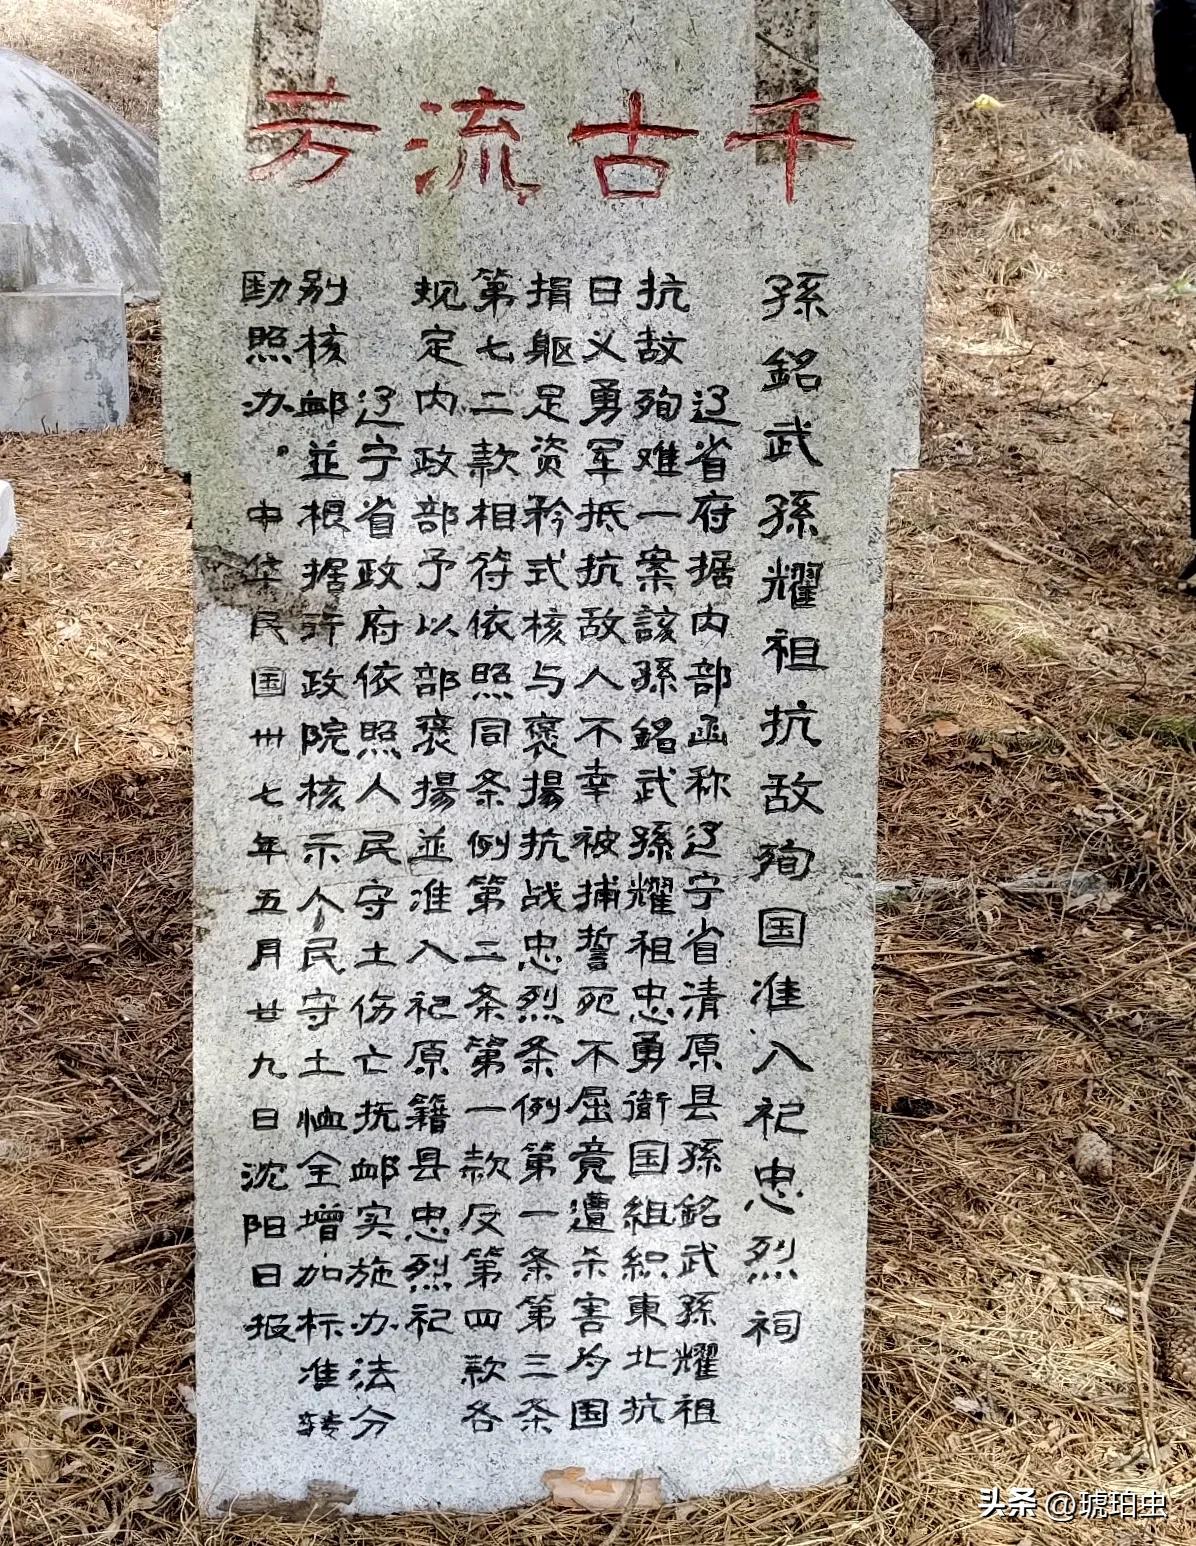 千古流芳
孫銘武孫耀祖抗敌殉国准入祀忠烈祠
辽省府据内部函称辽宁省清原县孫銘武孫耀祖
抗敌殉难一案該孫銘武孫耀祖忠勇衛国組織東北抗
日义勇军抵抗敌人不幸被捕誓死不屈竟遭杀害为国
捐躯足资矜式核与褒揚抗战忠烈条例第一条第三条
第七二款相符依照同条例第二条第一款及第四款各
规定内政部予以部褒揚並准入祀原籍县忠烈祀
辽宁省政府依照人民守土伤亡抚邮实施办法分
别核邮並根据行政院核示人民守土恤全增加标准转
勛照办。中华民国卅七年五月廿九日沈阳日报
头条 @琥珀虫